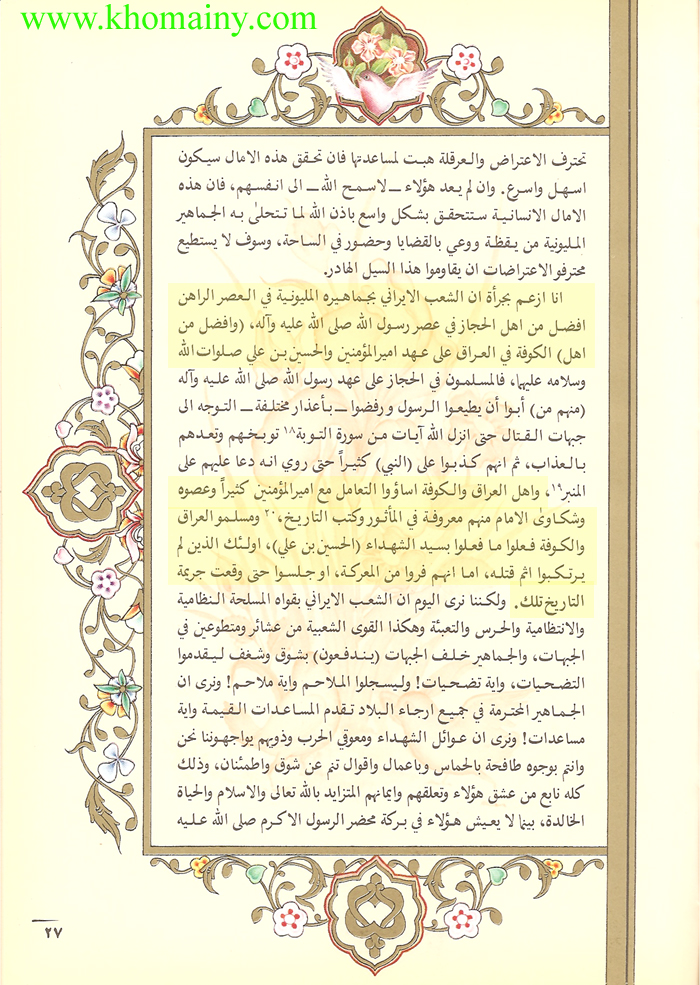 www.khomainy.com
تحترف الاعتراض والعرقلة هبت لمساعدتها فان تحقق هذه الامال سيكون
اسهل واسرع. وان لم يعد هؤلاء ــ لاسمح الله ــ الى انفسهم، فان هذه
الامال الانسانية ستتحقق بشكل واسع باذن الله لما تتحلى به الجماهير
المليونية من يقظة ووعي بالقضايا وحضور في الساحة، وسوف لا يستطيع
محترفو الاعتراضات ان يقاوموا هذا السيل الهادر.
انا ازعم بجرأة ان الشعب الايراني بجماهيره المليونية في العصر الراهن
افضل من اهل الحجاز في عصر رسول الله صلى الله عليه وآله، (وافضل من
اهل) الكوفة في العراق على عهد اميرالمؤمنين والحسين بن علي صلوات الله
وسلامه عليهما، فالمسلمون في الحجاز على عهد رسول الله صلى الله عليه وآله
(منهم من) أبوا أن يطيعوا الرسول ورفضوا ــ بأعذار مختلفة ــ التوجه الى
جبهات القتال حتى انزل الله آيات من سورة التوبة١٨ توبخهم وتعدهم
بالعذاب، ثم انهم كذبوا على (النبي) كثيراً حتى روي انه دعا عليهم على
المنبر١٩، واهل العراق والكوفة اساؤوا التعامل مع اميرالمؤمنين كثيراً وعصوه
وشكاوى الامام منهم معروفة في المأثور وكتب التاريخ،٢٠ ومسلمو العراق
والكوفة فعلوا ما فعلوا بسيد الشهداء (الحسين بن علي)، اولئك الذين لم
يرتكبوا اثم قتله، اما انهم فروا من المعركة، او جلسوا حتى وقعت جريمة
التاريخ تلك. ولكننا نرى اليوم ان الشعب الايراني بقواه المسلحة النظامية
والانتظامية والحرس والتعبئة وهكذا القوى الشعبية من عشائر ومتطوعين في
الجبهات، والجماهير خلف الجبهات (يندفعون) بشوق وشغف ليقدموا
التضحيات، واية تضحيات! وليسجلوا الملاحم واية ملاحم! ونرى ان
الجماهير المحترمة في جميع ارجاء البلاد تقدم المساعدات القيمة واية
مساعدات! ونرى ان عوائل الشهداء ومعوقي الحرب وذويهم يواجهوننا نحن
وانتم بوجوه طافحة بالحماس وباعمال واقوال تنم عن شوق واطمئنان، وذلك
كله نابع من عشق هؤلاء وتعلقهم وايمانهم المتزايد بالله تعالى والاسلام والحياة
الخالدة، بينما لا يعيش هؤلاء في بركة محضر الرسول الاكرم صلى الله عليه
٢٧